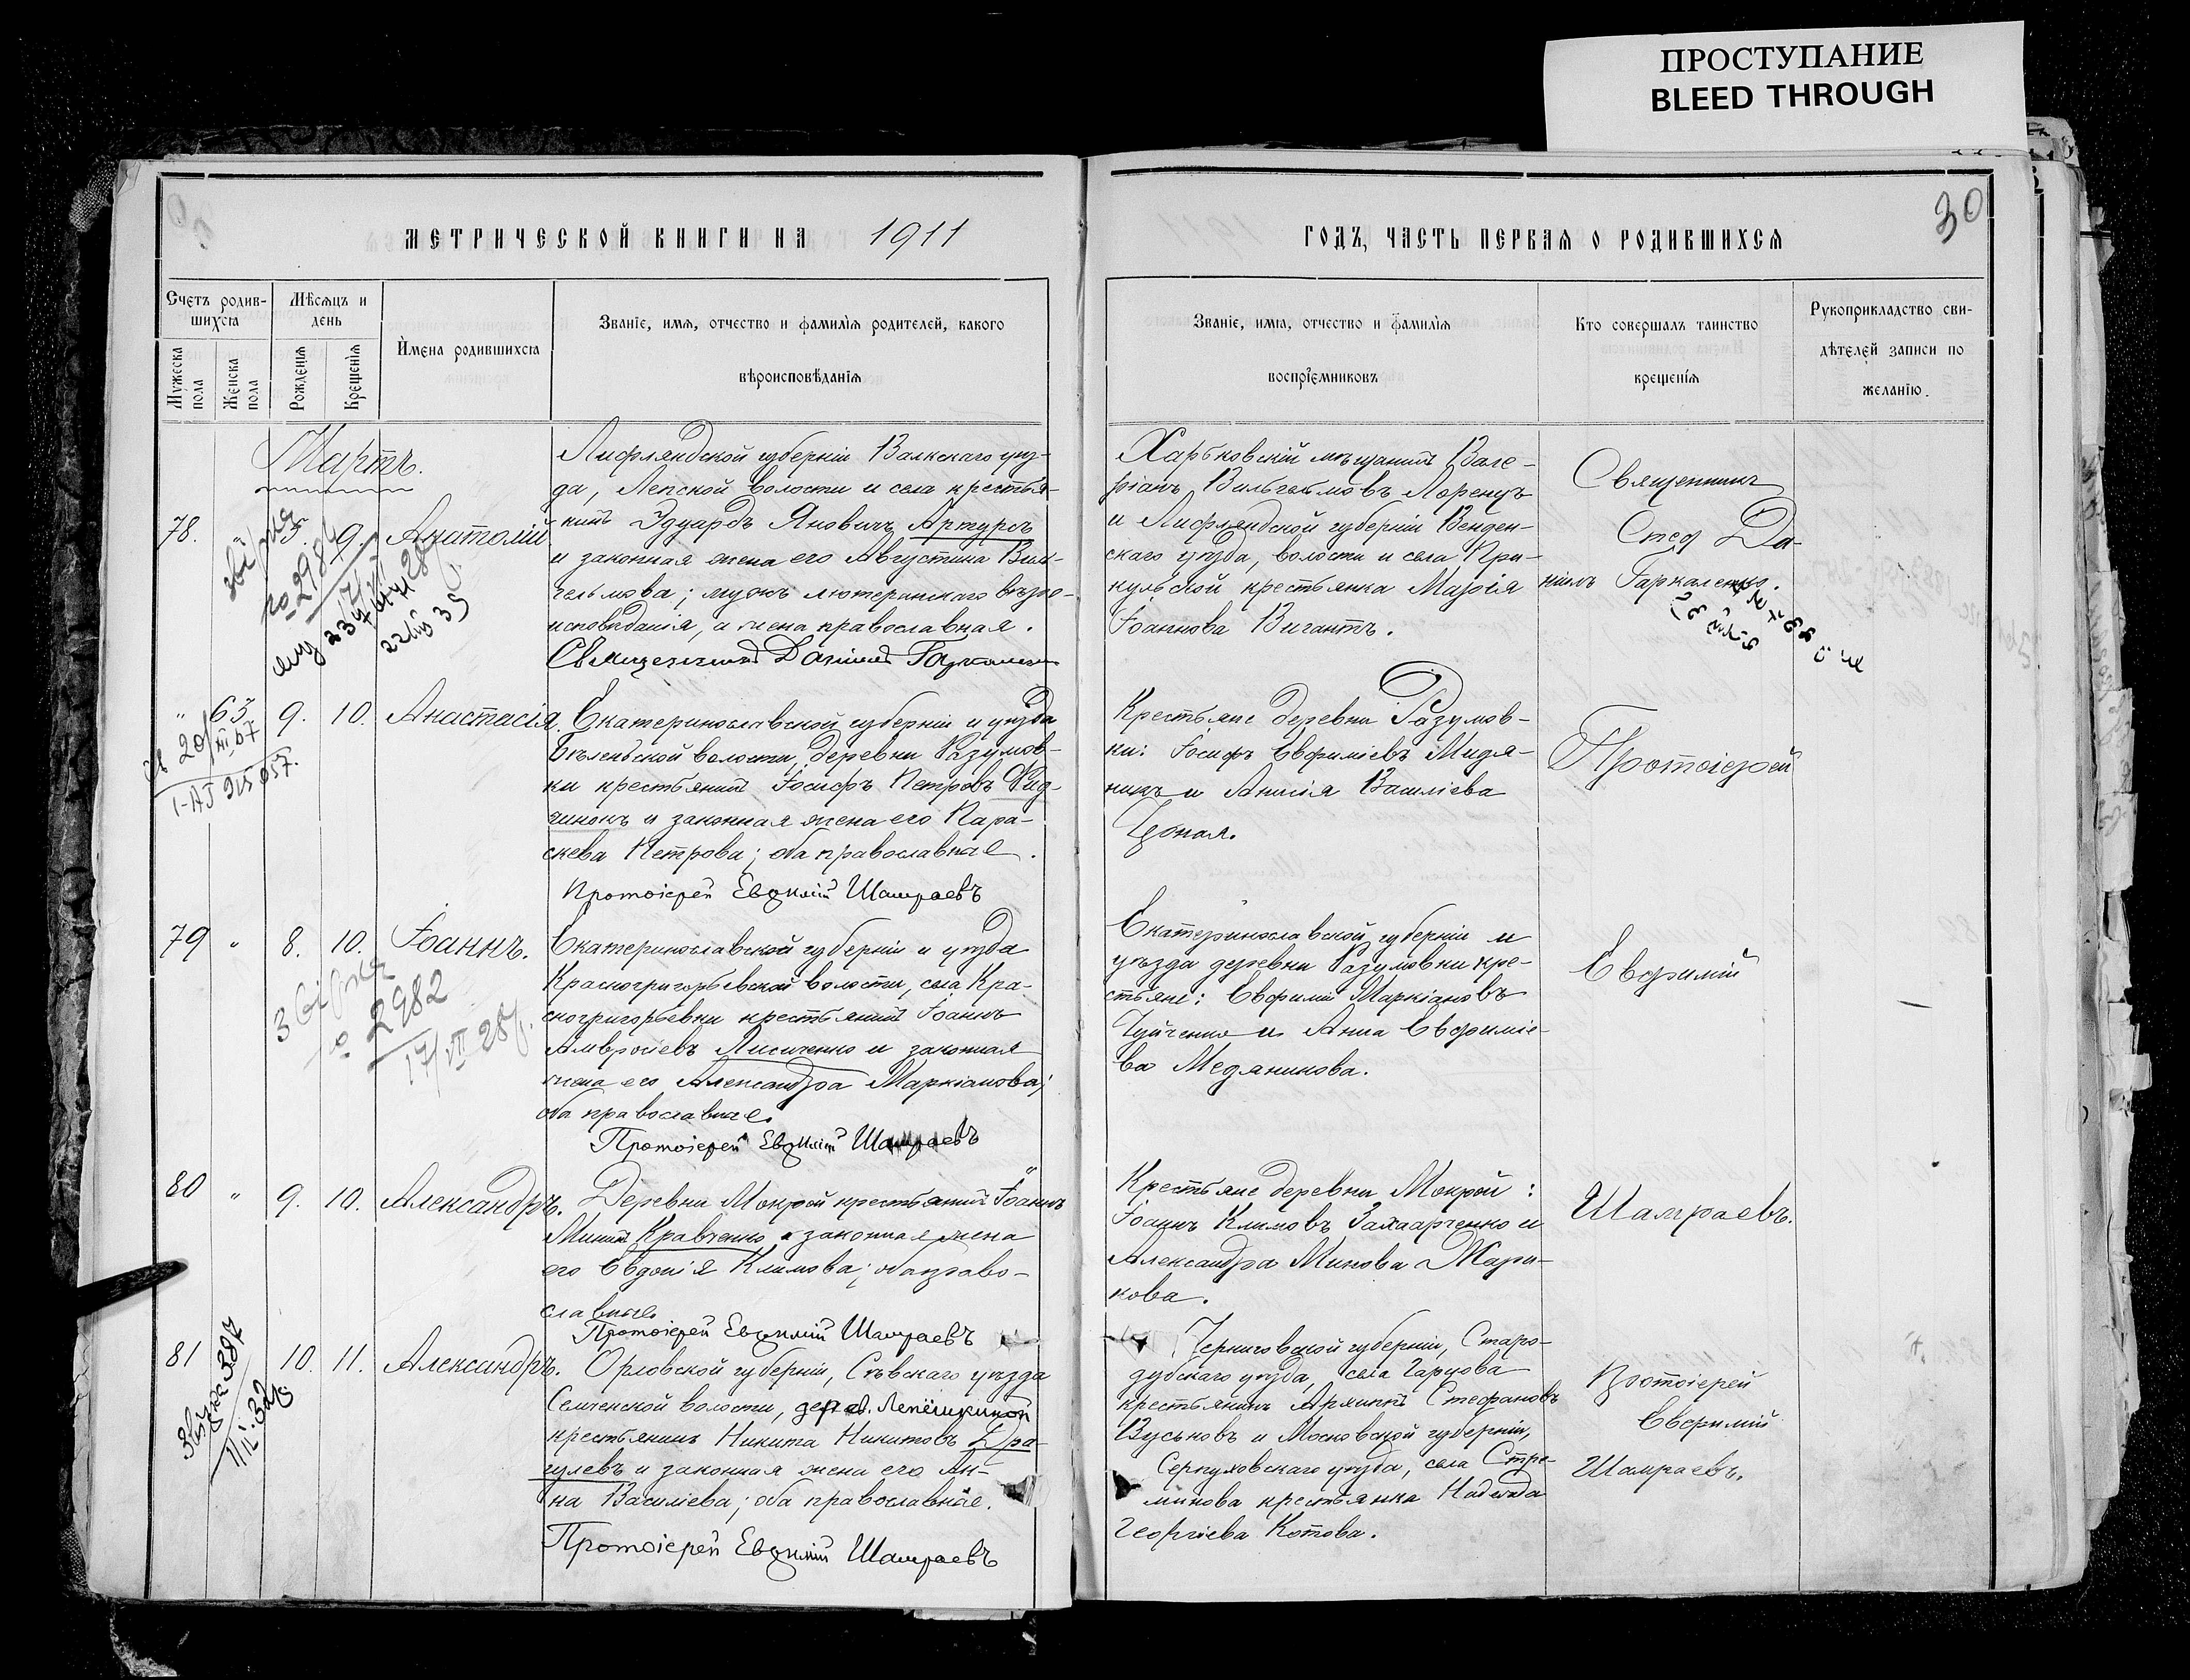 ПРОСТУПАНИЕ
BLEED THROUGH
30
МЕТРИЧЕСКОЙ КНИГИ НА 1911
ГОДЪ, ЧАСТЬ ПЕРВАЯ О РОДИВШИХСЯ
Счетъ родив-
шихся
Мѣсяцъ и
день
Мужеска
пола
Женска
пола
Рожденія
Крещенія
Имена родившихся
Званіе, имя, отчество и фамилія родителей, какого
вѣроисповѣданія
Званіе, имя, отчество и фамилія
воспріемниковъ
Кто совершалъ таинство
крещенія
Рукоприкладство сви-
дѣтелей записи по
желанію.
Мартъ.
78. " 5. 9. Анатолій
Лифляндской губерніи Валкскаго уѣз-
да, Лепской волости и села крестья-
нинъ Эдуардъ Яновичъ Артурсъ
и законная жена его Августина Виль-
гельмова; мужъ лютеранскаго вѣро-
исповѣданія, а жена православная.
Священникъ Даніилъ Гаркаленко
Харьковскій мѣщанинъ Вале-
ріанъ Вильгельмовъ Лоренцъ
и Лифляндской губерніи Венден-
скаго уѣзда, волости и села При-
кульской крестьянка Марія
Іоаннова Вигантъ.
Священникъ
Да-
ніилъ Гаркаленко.
2984
" 63 9. 10. Анастасія.
Екатеринославской губерніи и уѣзда
Бѣленьской волости, деревни Разумов-
ки крестьянинъ Іосифъ Петровъ Рид-
чинокъ и законная жена его Пара-
скева Петрова; оба православные.
Протоіерей Евфимій Шамраевъ
Крестьяне деревни Разумов-
ки: Іосифъ Евфиміевъ Мидя-
никъ и Анисія Василіева
Цоная.
Протоіерей
79 " 8. 10. Іоаннъ.
Екатеринославской губерніи и уѣзда
Красногригорьевской волости, села Кра-
сногригорьевки крестьянинъ Іоаннъ
Амвросіевъ Лисиченко и законная
жена его Александра Маркіанова;
оба православные.
Протоіерей Евфимій Шамраевъ
Екатеринославской губерніи и
уѣзда деревни Разумовки кре-
стьяне: Евфимій Маркіановъ
Чуйченко и Анна Евфиміе-
ва Медяникова.
Евфимій
2982
17/VII 28
80 " 9. 10. Александръ.
Деревни Мокрой крестьянинъ Іоаннъ
Мининъ Кравченко и законная жена
его Евдокія Климова; оба право-
славные.
Протоіерей Евфимій Шамраевъ
Крестьяне деревни Мокрой:
Іоаннъ Климовъ Захаарченко и
Александра Минова Жари-
кова.
Шамраевъ.
81 10. 11. Александръ.
Орловской губерніи, Сѣвскаго уѣзда
Семченской волости, дерев. Лепёшкиной
крестьянинъ Никита Никитовъ Дра-
гулевъ и законная жена его Ан-
на Василіева; оба православные.
Протоіерей Евфимій Шамраевъ
Черниговской губерніи, Старо-
дубскаго уѣзда, села Гарцова
крестьянинъ Архиппъ Стефановъ
Вуськовъ и Московской губерніи,
Серпуховскаго уѣзда, села Стре-
минова крестьянка Надежда
Георгіева Котова.
Протоіерей
Евфимій
Шамраевъ.